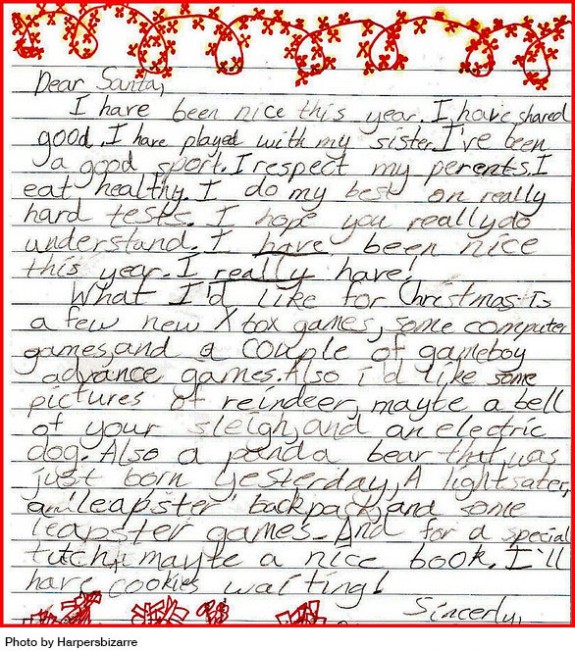 Dear Santa,
I have been nice this year. I have shared
good. I have played with my sister. I've been
a good sport. I respect my perents. I
eat healthy. I do my best on really
hard tests. I hope you really do
understand. I have been nice
this year. I really have!
What I'd like for Christmas is
a few new Xbox games, some computer
games, and a couple of gameboy
advance games. Also i'd like some
pictures of reindeer, mayte a bell
of your sleigh, and an electric
dog. Also a panda bear that was
just born yesterday, A lightsater,
and leapster backpack, and some
leapster games. And for a special
tutch, mayte a nice book. I'll
have cookies waiting!
Sincerly,
Photo by Harpersbizarre